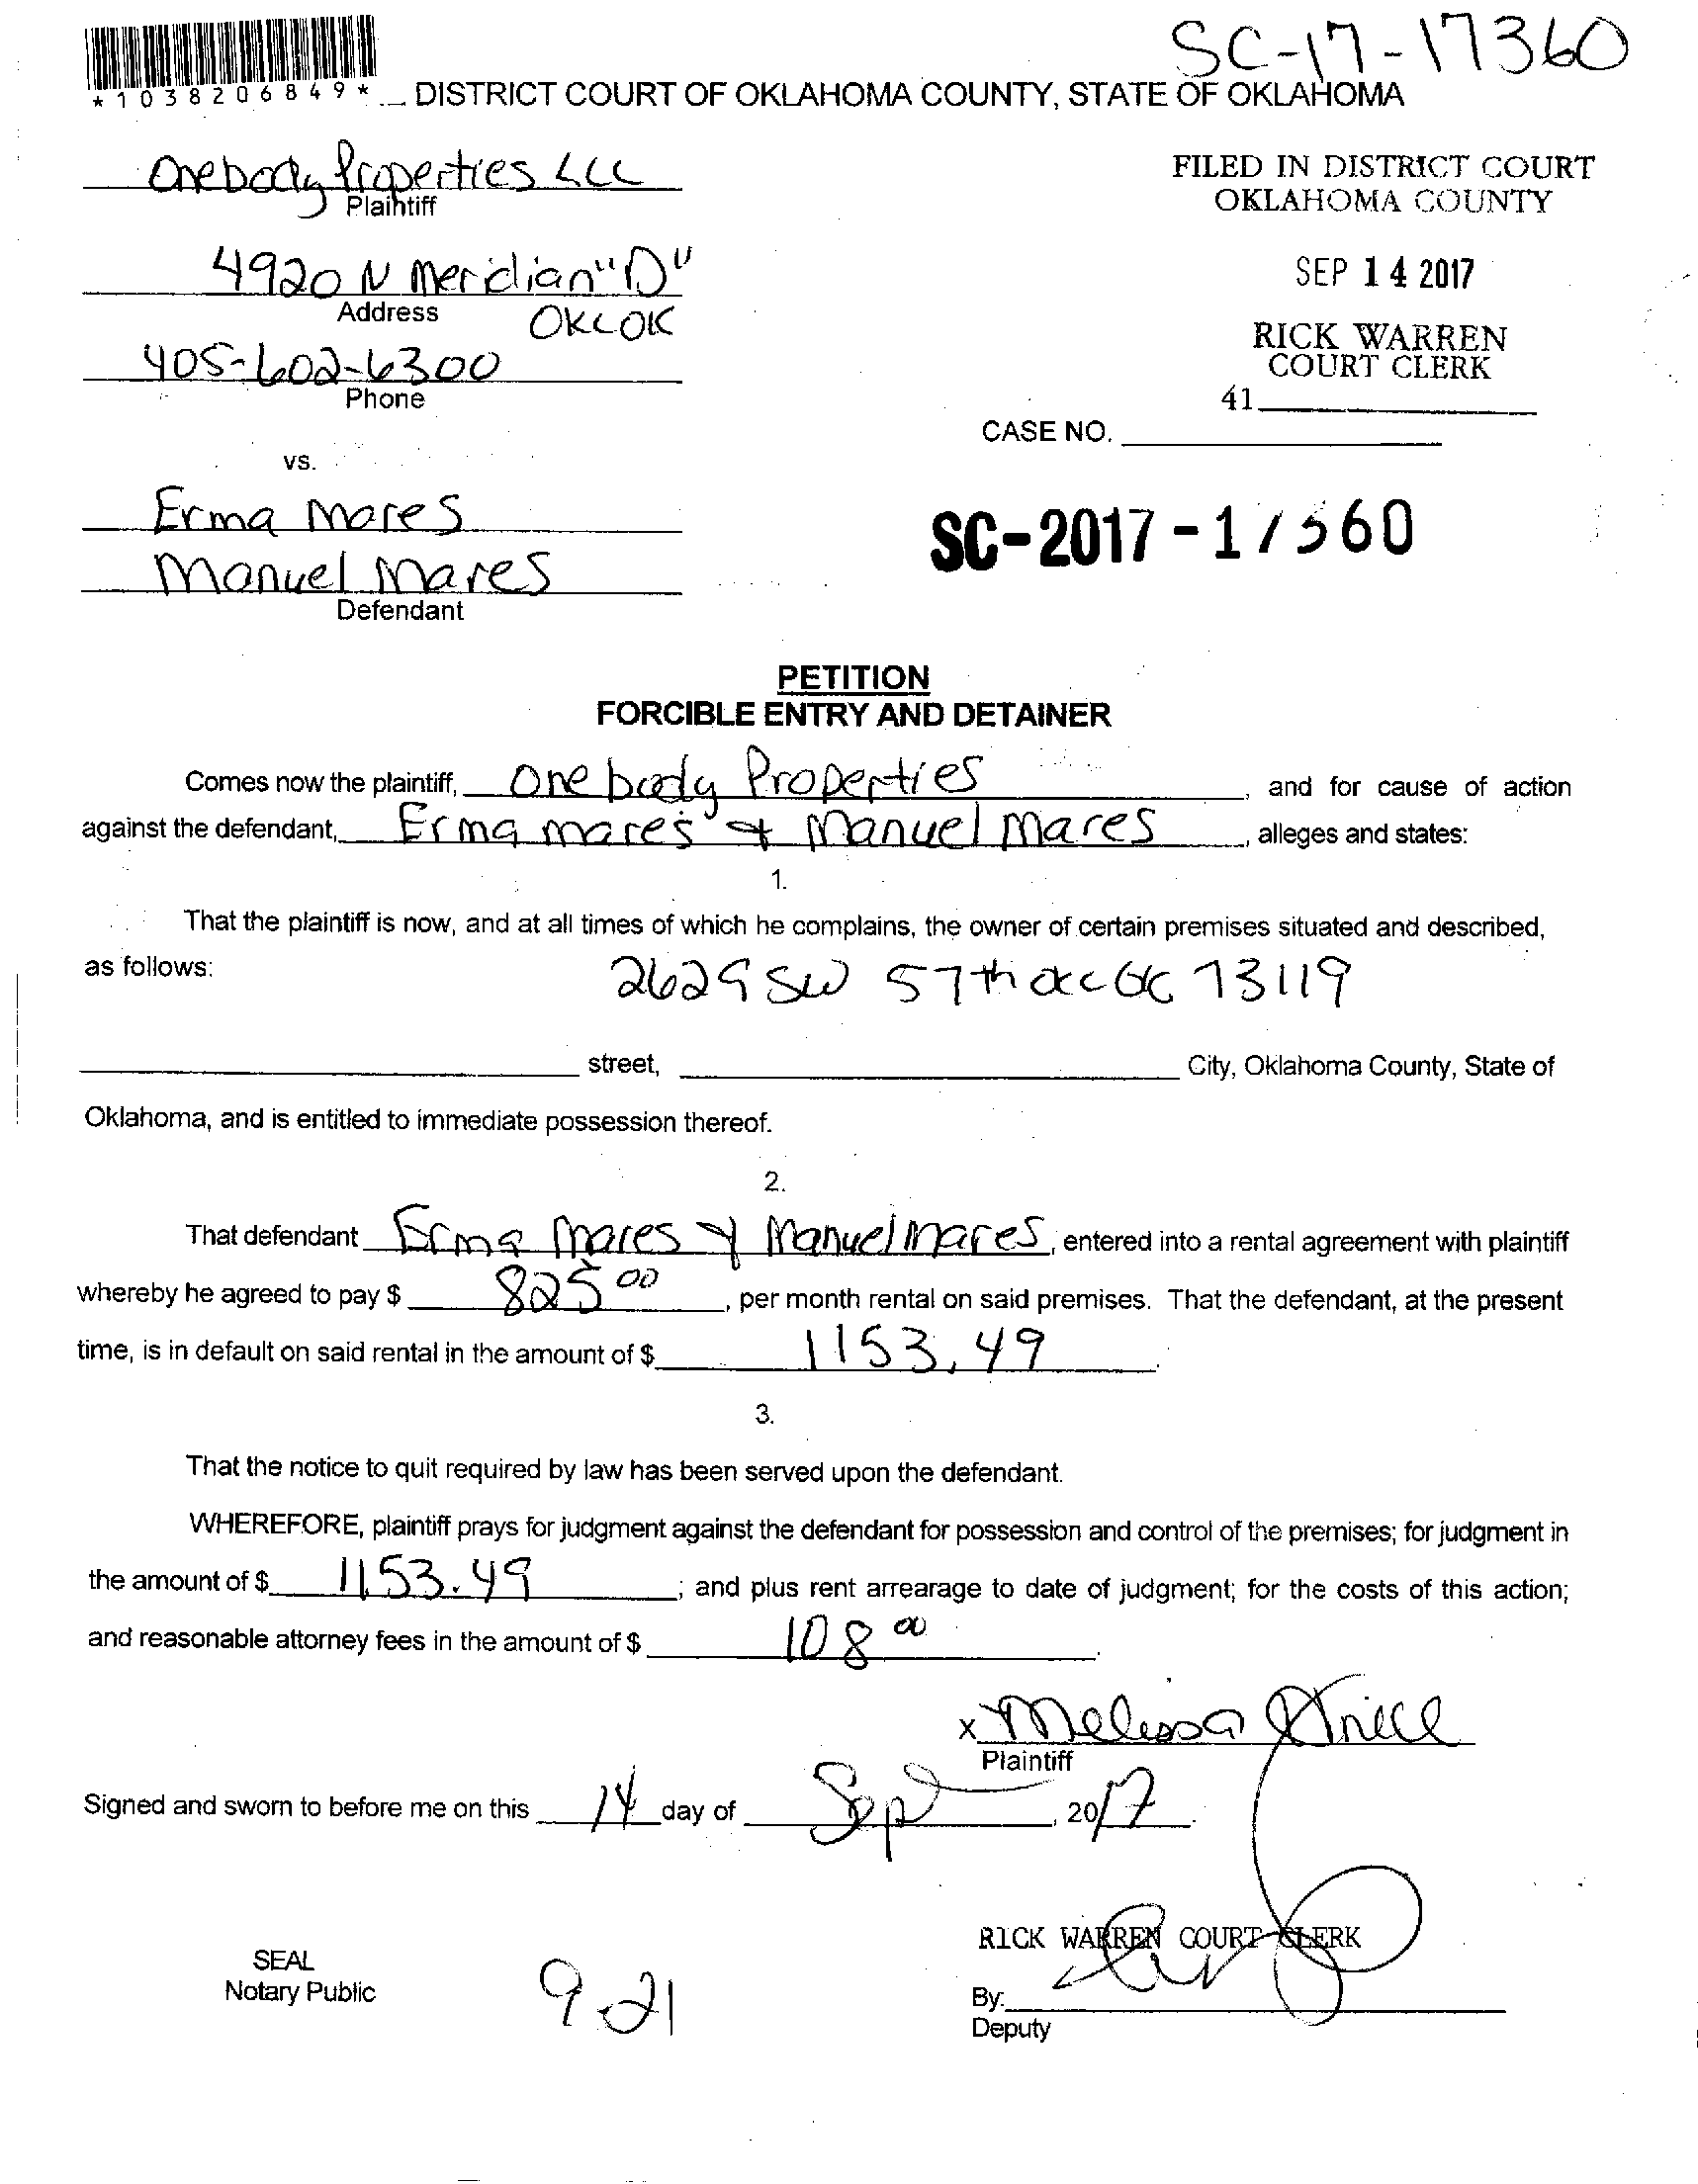 SC-17-17360
*1038206849*
DISTRICT COURT OF OKLAHOMA COUNTY, STATE OF OKLAHOMA
Onebody Properties LLC
Plaintiff
FILED IN DISTRICT COURT
OKLAHOMA COUNTY
4920 N Meridian "D"
Address
OKC OK
SEP 14 2017
405-602-6300
Phone
RICK WARREN
COURT CLERK
41
CASE NO.
vs.
Erma Mares
Manuel Mares
Defendant
SC-2017-17360
PETITION
FORCIBLE ENTRY AND DETAINER
Comes now the plaintiff, One body Properties, and for cause of action
against the defendant, Erma mares & Manuel Mares, alleges and states:
1.
That the plaintiff is now, and at all times of which he complains, the owner of certain premises situated and described,
as follows: 2629 SW 57th OKC OK 73119
street, City, Oklahoma County, State of
Oklahoma, and is entitled to immediate possession thereof.
2.
That defendant Erma Mares & Manuel Mares, entered into a rental agreement with plaintiff
whereby he agreed to pay $ 825 00, per month rental on said premises. That the defendant, at the present
time, is in default on said rental in the amount of $ 1153.49.
3.
That the notice to quit required by law has been served upon the defendant.
WHEREFORE, plaintiff prays for judgment against the defendant for possession and control of the premises; for judgment in
the amount of $ 1153.49; and plus rent arrearage to date of judgment; for the costs of this action;
and reasonable attorney fees in the amount of $ 108 00.
x Melissa
Plaintiff
Signed and sworn to before me on this 14 day of Sept, 2017.
RICK WARREN COURT CLERK
SEAL
Notary Public
9-21
By:
Deputy